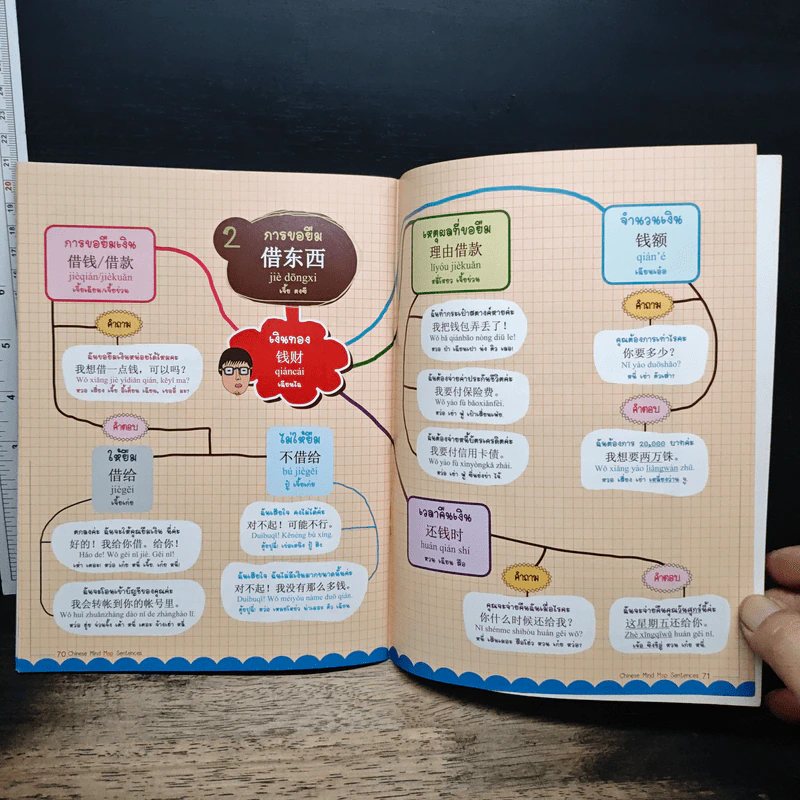 2
การขอยืม
借东西
jiè dōngxi
เจี้ย ตงซี
เงินทอง
钱财
qiáncái
เฉียนไฉ
การขอยืมเงิน
借钱/借款
jièqián/jièkuǎn
เจี้ยเฉียน/เจี้ยข่วน
คำถาม
ฉันขอยืมเงินหน่อยได้ไหมคะ
我想借一点钱，可以吗？
Wǒ xiǎng jiè yìdiǎn qián, kěyǐ ma?
คำตอบ
ให้ยืม
借给
jiègěi
เจี้ยเก่ย
ตกลงค่ะ ฉันจะให้คุณยืมเงิน นี่ค่ะ
好的！我给你借。给你！
Hǎo de! Wǒ gěi nǐ jiè. Gěi nǐ!
ฉันจะโอนเข้าบัญชีของคุณค่ะ
我会转帐到你的帐号里。
Wǒ huì zhuǎnzhàng dào nǐ de zhànghào lǐ.
ไม่ให้ยืม
不借给
bú jiègěi
ปู๋ เจี้ยเก่ย
ฉันเสียใจ คงไม่ได้ค่ะ
对不起！可能不行。
Duìbuqǐ! Kěnéng bù xíng.
ฉันเสียใจ ฉันไม่มีเงินมากขนาดนั้นค่ะ
对不起！我没有那么多钱。
Duìbuqǐ! Wǒ méiyǒu nàme duō qián.
70 Chinese Mind Map Sentences
เหตุผลที่ขอยืม
理由借款
lǐyóu jièkuǎn
หลี่โหยว เจี้ยข่วน
ฉันทำกระเป๋าสตางค์หายค่ะ
我把钱包弄丢了！
Wǒ bǎ qiánbāo nòng diū le!
ฉันต้องจ่ายค่าประกันชีวิตค่ะ
我要付保险费。
Wǒ yào fù bǎoxiǎnfèi.
ฉันต้องจ่ายหนี้บัตรเครดิตค่ะ
我要付信用卡债。
Wǒ yào fù xìnyòngkǎ zhài.
จำนวนเงิน
钱额
qián'é
เฉียนเอ๋อ
คำถาม
คุณต้องการเท่าไรคะ
你要多少？
Nǐ yào duōshǎo?
หนี่ เย่า ตัวเส่า?
คำตอบ
ฉันต้องการ 20,000 บาทค่ะ
我想要两万铢。
Wǒ xiǎng yào liǎngwàn zhū.
เวลาคืนเงิน
还钱时
huán qián shí
หวน เฉียน สือ
คำถาม
คุณจะจ่ายคืนฉันเมื่อไรคะ
你什么时候还给我？
Nǐ shénme shíhòu huán gěi wǒ?
คำตอบ
ฉันจะจ่ายคืนคุณวันศุกร์นี้ค่ะ
这星期五还给你。
Zhè xīngqīwǔ huán gěi nǐ.
Chinese Mind Map Sentences 71